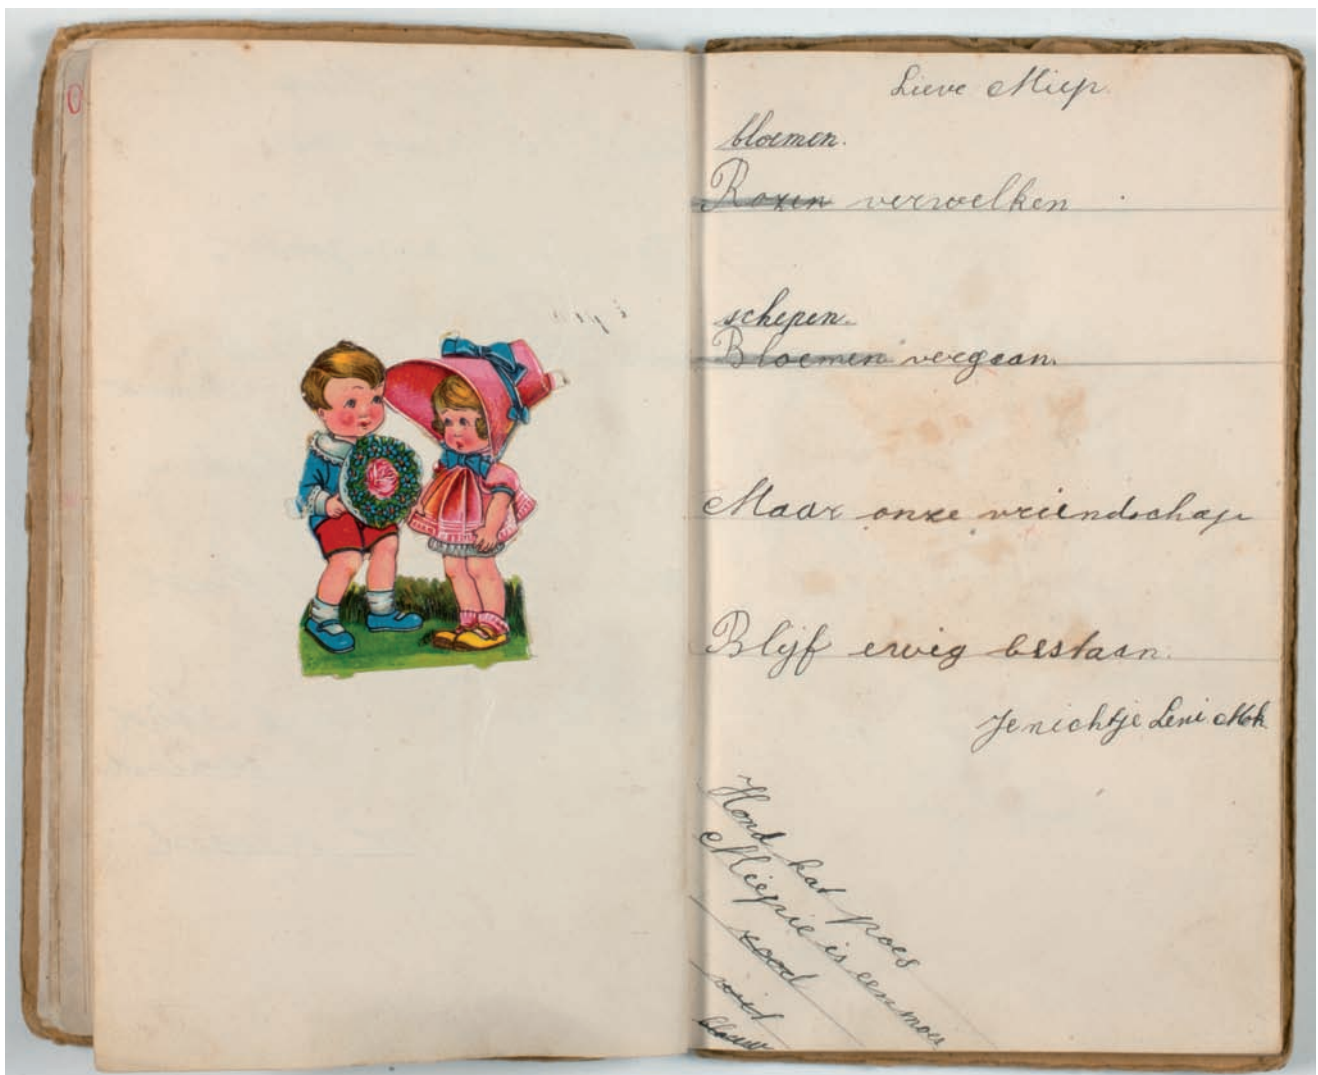 Lieve Miep.
bloemen.
Rozen verwelken
schepen.
Bloemen vergaan.
Maar onze vriendschap
Blijf eewig bestaan.
Je nichtje Leni Mok
Hond kat poes
Miepie is een moes
rood
wit
blauw